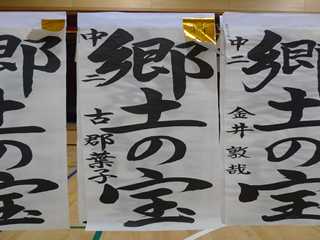 郷土の宝
郷土の宝
中二 古郡葉子
郷土の宝
中二 金井敦哉